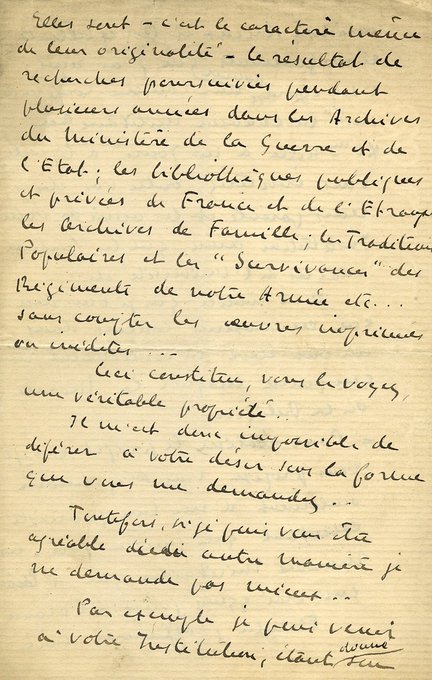 Elles sont - c'est le caractère même
de leur originalité - le résultat de
recherches poursuivies pendant
plusieurs années dans les Archives
du Ministère de la Guerre et de
l'Etat; les bibliothèques publiques
et privées de France et de l'Etranger
les Archives de Famille; les Traditions
Populaires et les "Survivances" des
Régiments de notre Armée etc...
sans compter les œuvres imprimées
ou inédites ...
Ceci constitue, vous le voyez,
une véritable propriété..
Il m'est donc impossible de
déférer à votre désir sous la forme
que vous me demandez..
Toutefois, si je puis vous être
agréable autre manière je
ne demande pas mieux..
Par exemple je puis venir
à votre Institution, étant donné